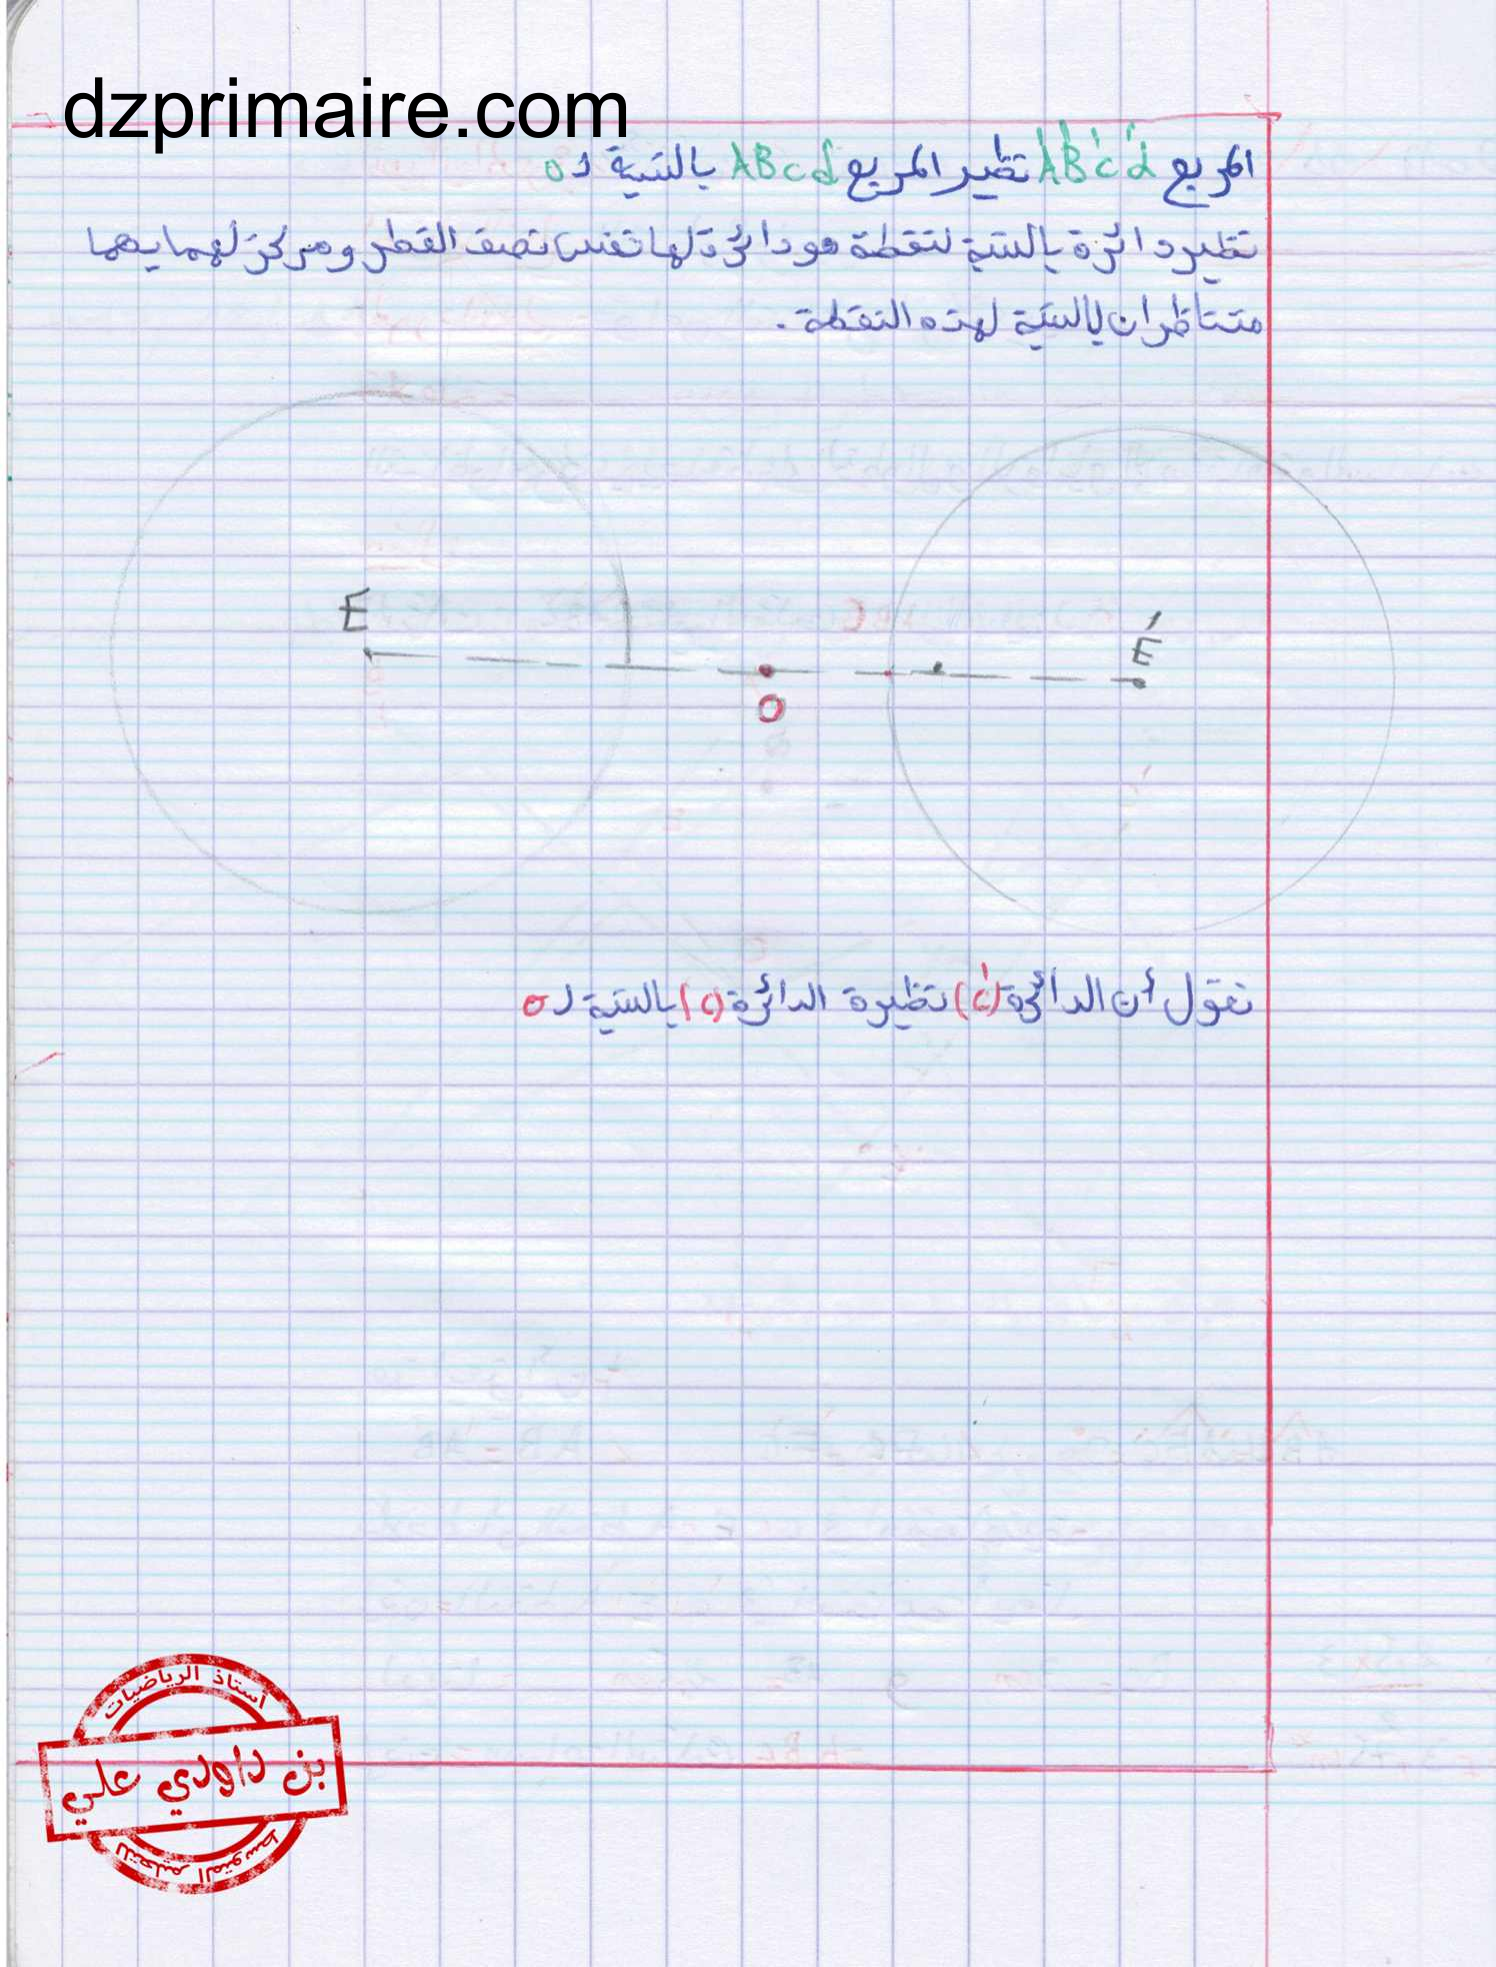 dzprimaire.com
المربع A'B'C'd' نظير المربع ABCd بالنسبة لـ O
نظير دائرة بالنسبة لنقطة هو دائرة لها نفس نصف القطر ومركز لهما يهما
متناظران بالنسبة لهذه النقطة.
E
E'
O
نقول أن الدائرة (C') نظيرة الدائرة (C) بالنسبة لـ O
أستاذ الرياضيات
بن داودي علي
للتعليم المتوسط